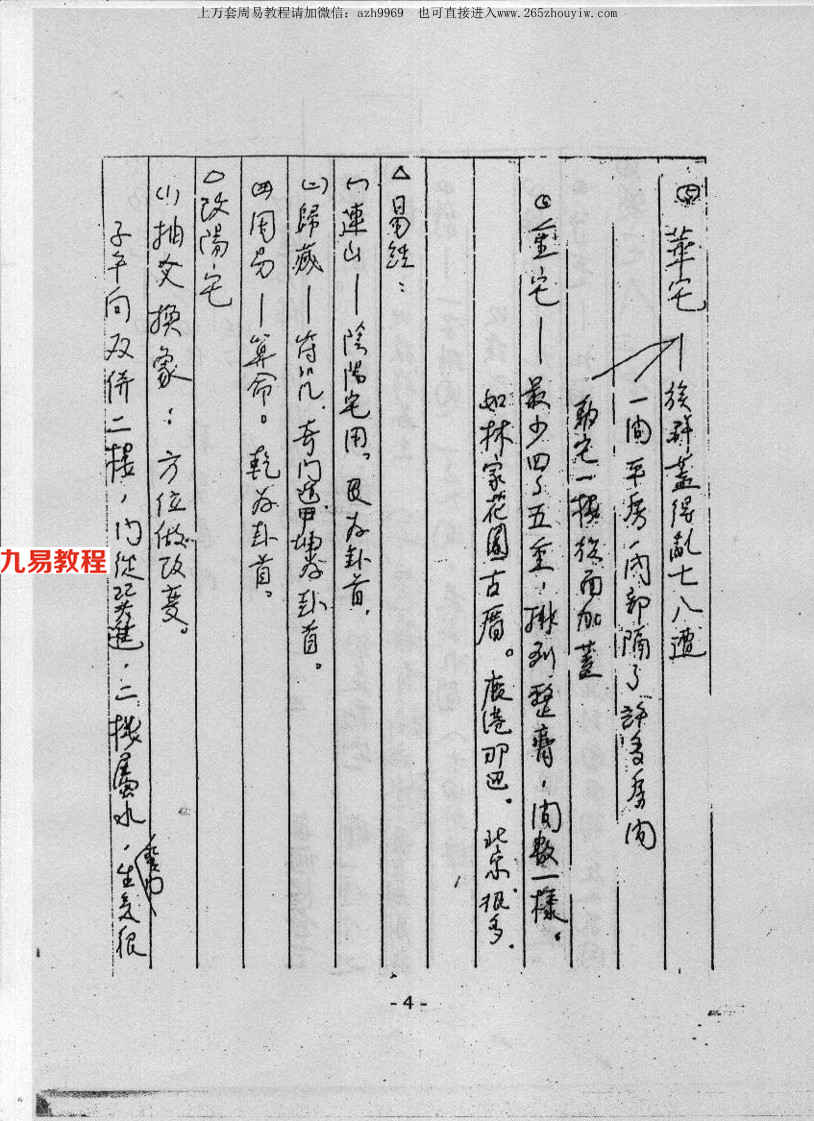 上万套周易教程请加微信：azh9969　也可直接进入www.265zhouyiw.com
㈣ 華宅—族群蓋得亂七八遭
一間平房，內部隔了許多房間
動宅一樓後面加蓋
㈤ 重宅—最少四了五重，排列整齊，間數一樣。
如林家花園古厝。鹿港那邊。北京很多.
△易經：
㈠連山—陰陽宅用。艮為卦首.
㈡歸藏—符咒.奇門遁甲.坤為卦首。
㈣周易—算命。乾為卦首。
△改陽宅
⑴抽爻換象：方位做改變。
子午向双併二樓，門從巽進，二樓屬水，生氣很
九易教程
- 4 -